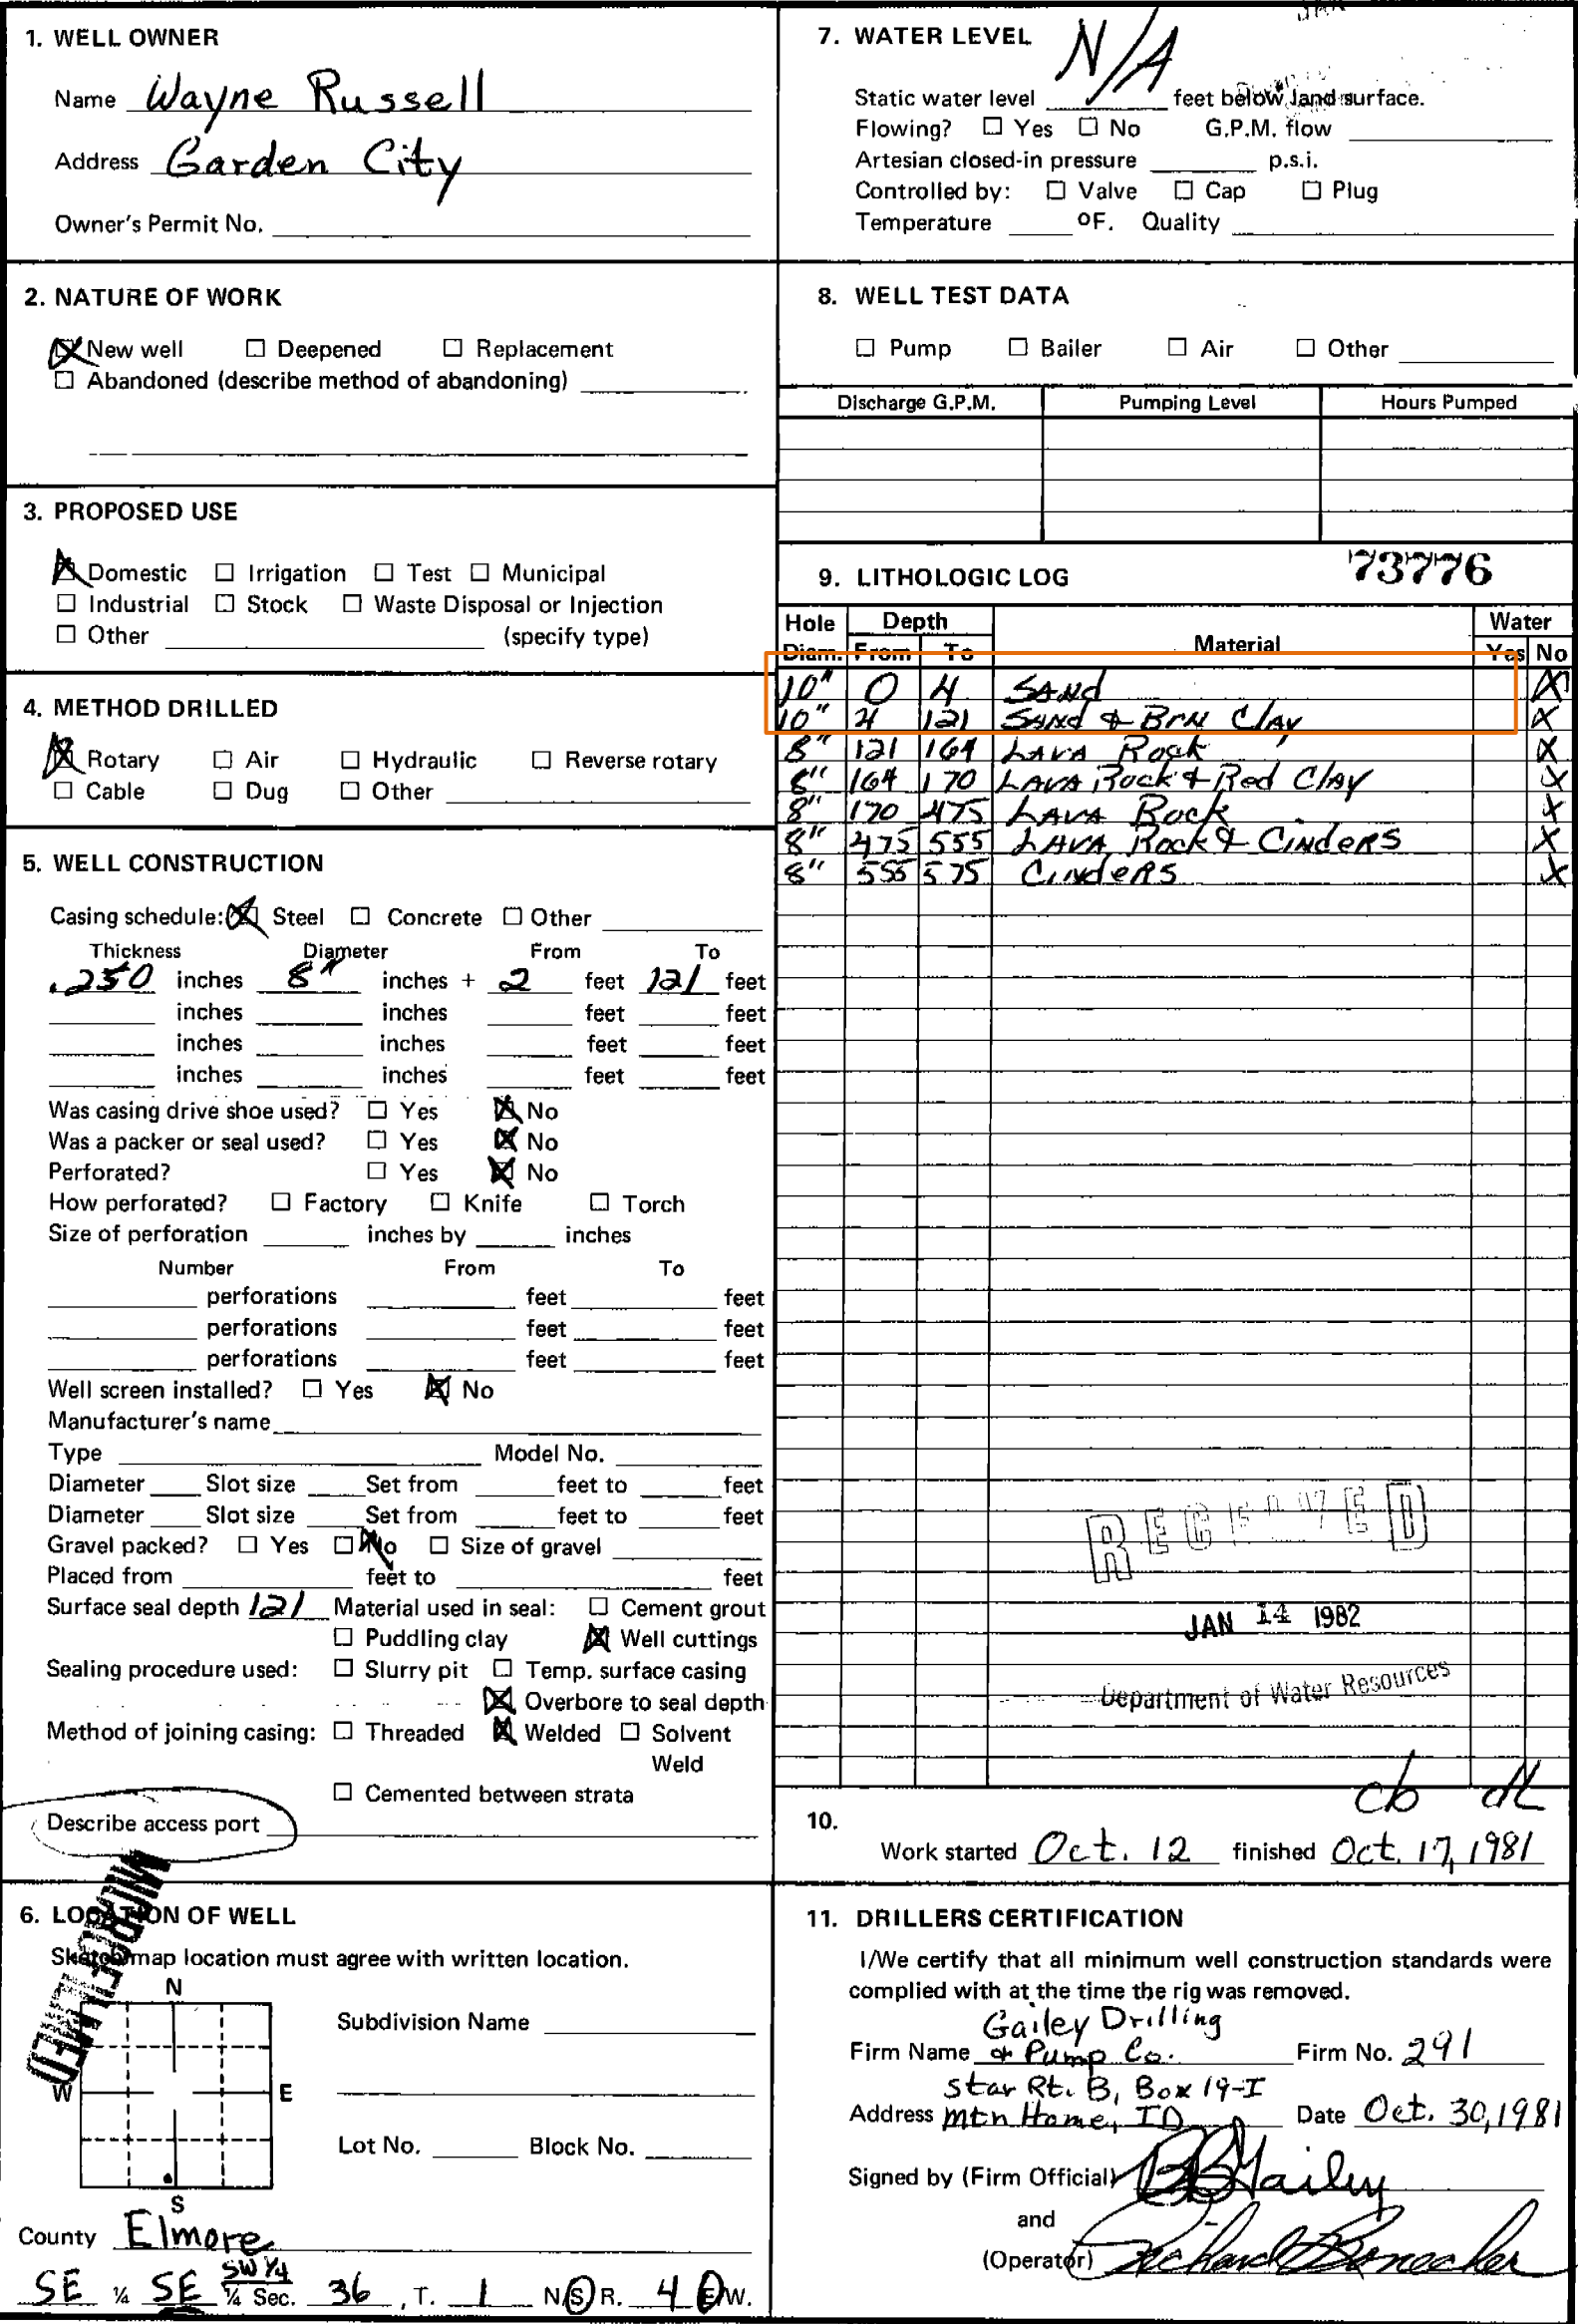 1. WELL OWNER
Name Wayne Russell
Address Garden City
Owner's Permit No.
2. NATURE OF WORK
New well Deepened Replacement
Abandoned (describe method of abandoning)
3. PROPOSED USE
Domestic Irrigation Test Municipal
Industrial Stock Waste Disposal or Injection
Other (specify type)
4. METHOD DRILLED
Rotary Air Hydraulic Reverse rotary
Cable Dug Other
5. WELL CONSTRUCTION
Casing schedule: Steel Concrete Other
Thickness Diameter From To
.250 inches 8" inches + 2 feet 121 feet
inches inches feet feet
inches inches feet feet
inches inches feet feet
Was casing drive shoe used? Yes No
Was a packer or seal used? Yes No
Perforated? Yes No
How perforated? Factory Knife Torch
Size of perforation inches by inches
Number From To
perforations feet feet
perforations feet feet
perforations feet feet
Well screen installed? Yes No
Manufacturer's name
Type Model No.
Diameter Slot size Set from feet to feet
Diameter Slot size Set from feet to feet
Gravel packed? Yes No Size of gravel
Placed from feet to feet
Surface seal depth 121 Material used in seal: Cement grout
Puddling clay Well cuttings
Sealing procedure used: Slurry pit Temp. surface casing
Overbore to seal depth
Method of joining casing: Threaded Welded Solvent
Weld
Cemented between strata
Describe access port
MICROFILMED
6. LOCATION OF WELL
Sketch map location must agree with written location.
N
W E
S
Subdivision Name
Lot No. Block No.
County Elmore
SW 1/4
SE ¼ SE ¼ Sec. 36, T. 1 N/S R. 4 E/W.
7. WATER LEVEL
N/A
Static water level feet below land surface.
Flowing? Yes No G.P.M. flow
Artesian closed-in pressure p.s.i.
Controlled by: Valve Cap Plug
Temperature ºF. Quality
8. WELL TEST DATA
Pump Bailer Air Other
Discharge G.P.M. Pumping Level Hours Pumped
9. LITHOLOGIC LOG 73776
Hole Depth Water
Diam. From To Material Yes No
10" 0 4 SANd X
10" 4 121 SANd & BrN ClAy X
8" 121 164 LAVA Rock X
8" 164 170 LAVA Rock & Red ClAy X
8" 170 475 LAVA Rock X
8" 475 555 LAVA Rock & CiNdeRS X
8" 555 575 CiNdeRS X
RECEIVED
JAN 14 1982
Department of Water Resources
cb dk
10.
Work started Oct. 12 finished Oct. 17, 1981
11. DRILLERS CERTIFICATION
I/We certify that all minimum well construction standards were
complied with at the time the rig was removed.
Gailey Drilling
Firm Name & Pump Co. Firm No. 291
Star Rt. B, Box 19-I
Address Mtn Home, ID Date Oct. 30, 1981
Signed by (Firm Official) BB Gailey
and
(Operator) Richard Bonecker